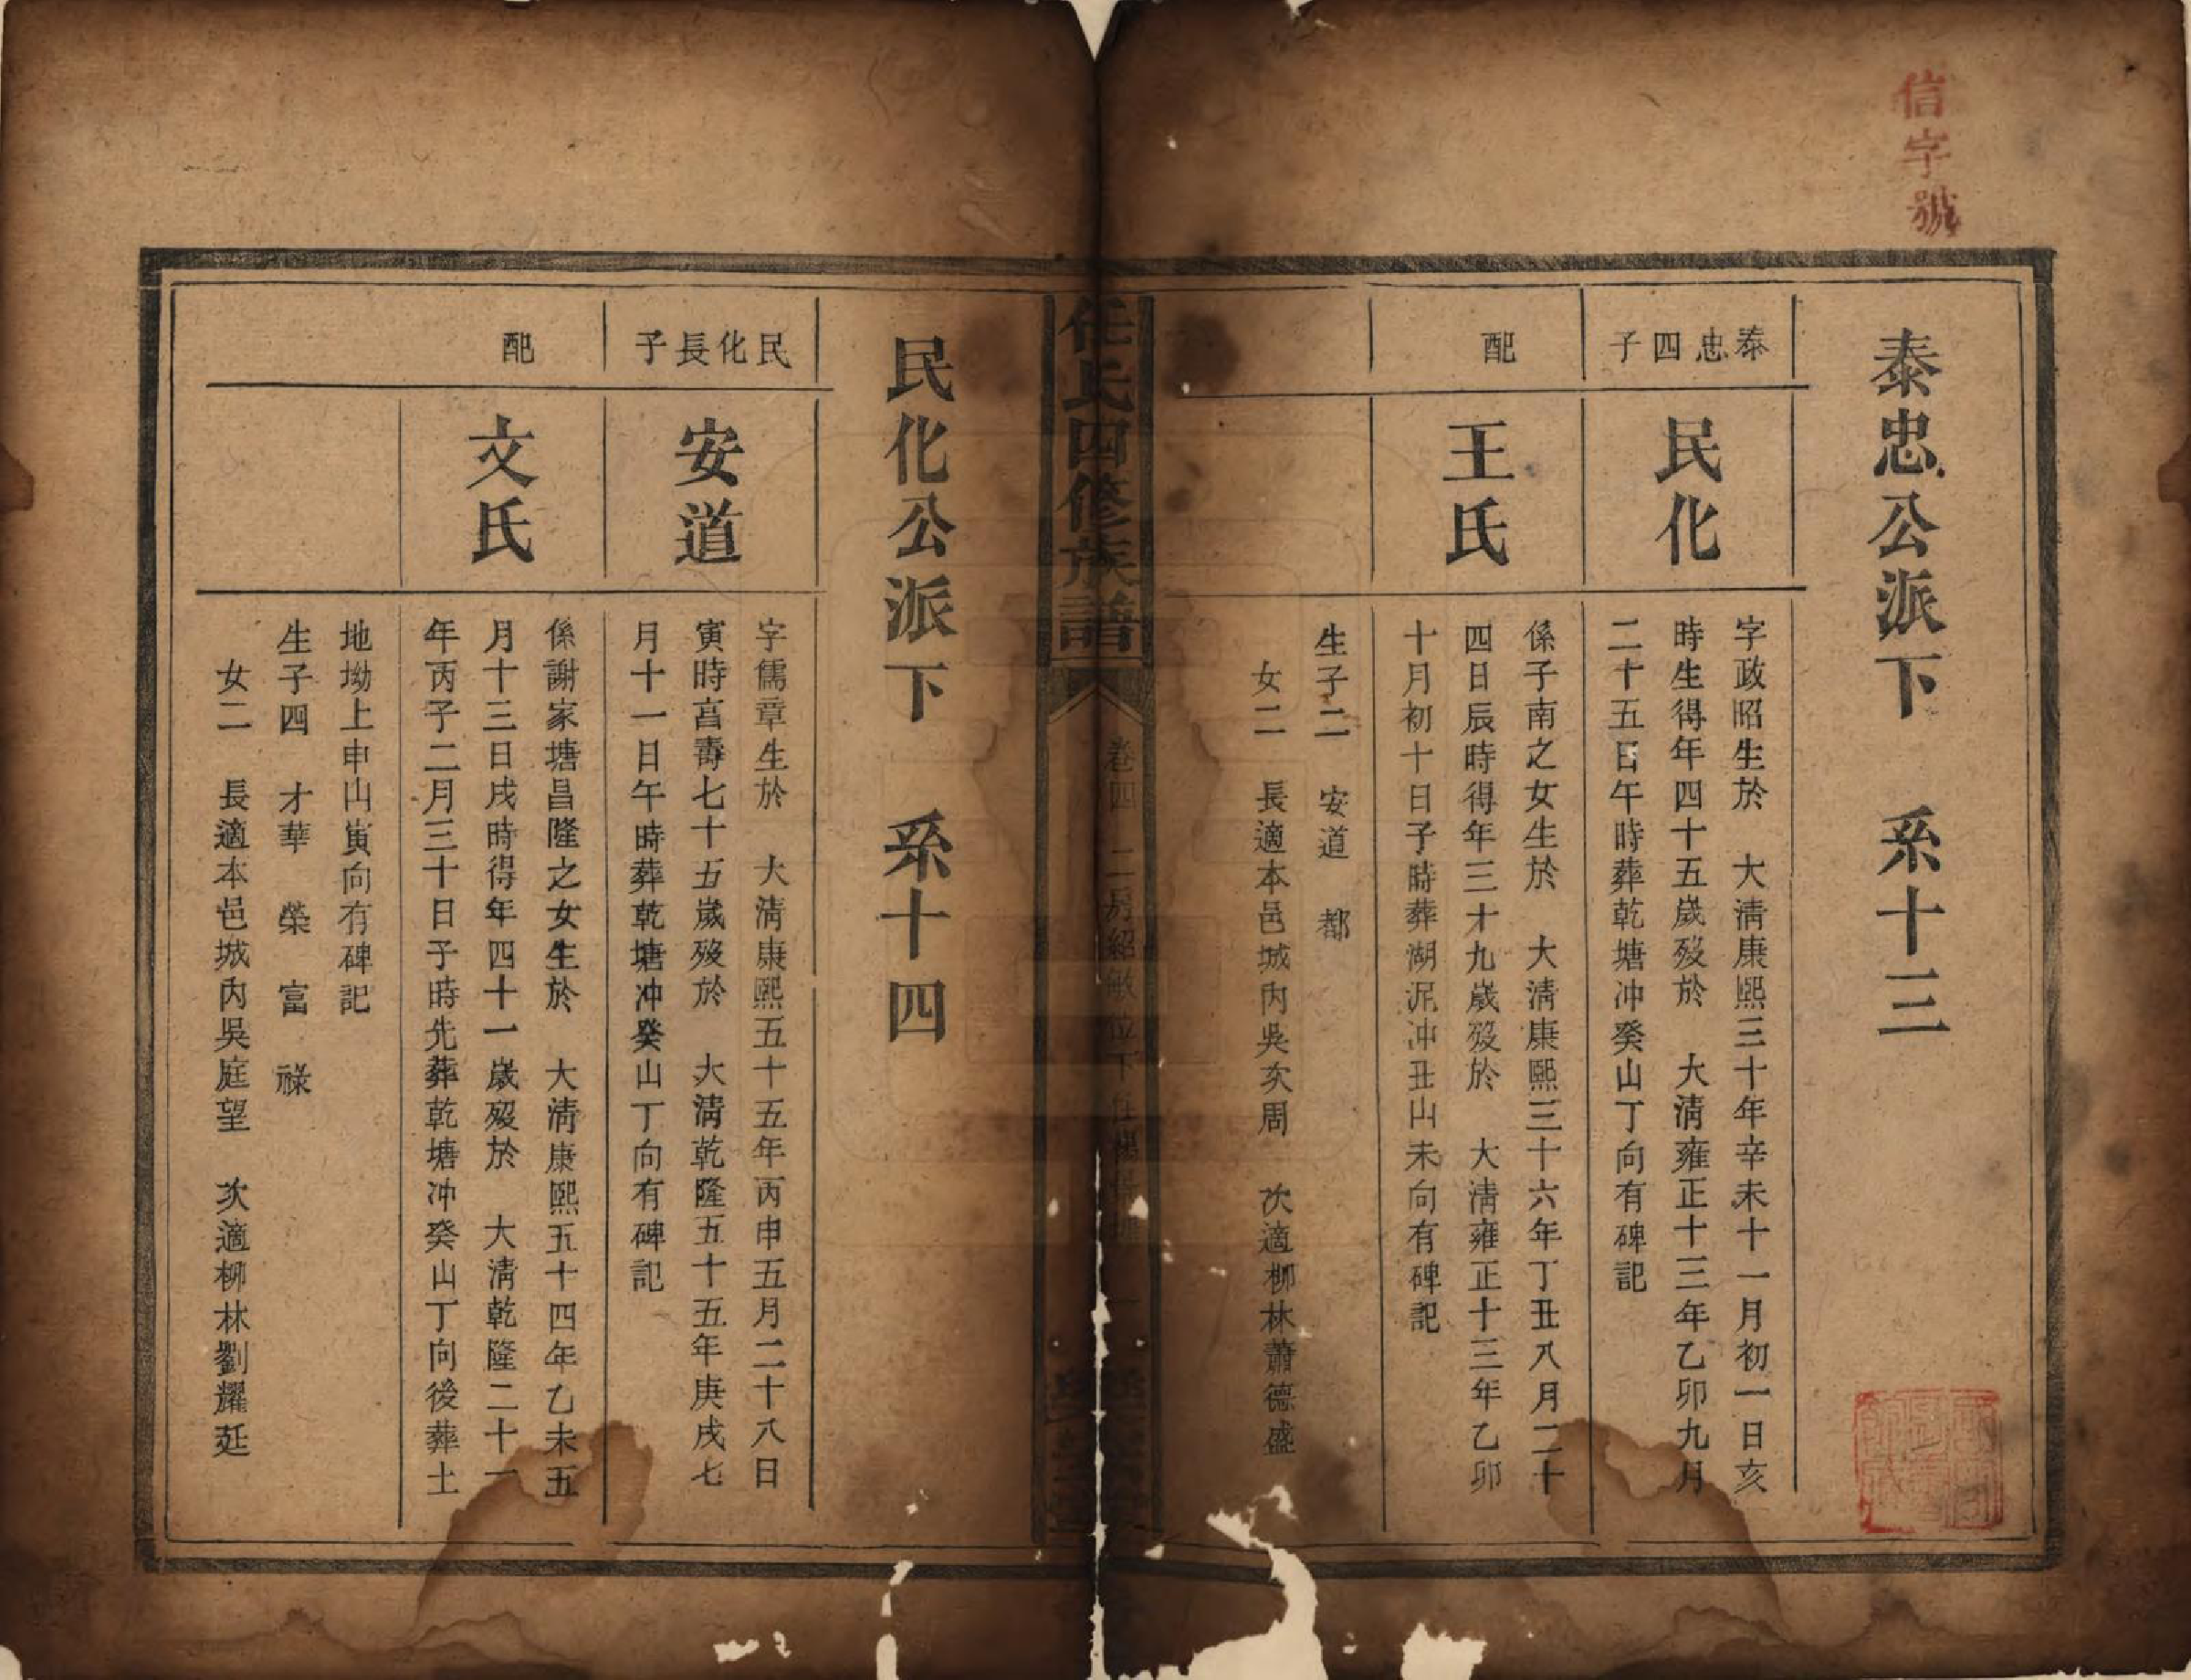 信字號
泰忠公派下 系十三
泰忠四子
民化
字政昭生於 大清康熙三十年辛未十一月初一日亥
時生得年四十五歲殁於 大清雍正十三年乙卯九月
二十五日午時葬乾塘冲癸山丁向有碑記
配
王氏
係子南之女生於 大清康熙三十六年丁丑八月二十
四日辰時得年三十九歲殁於 大清雍正十三年乙卯
十月初十日子時葬湖泥冲丑山未向有碑記
生子二 安道 都
女二 長適本邑城內吳亥周 次適柳林蕭德盛
任氏四修族譜
卷四 二房紹敏位下
民化公派下 系十四
民化長子
安道
字儒章生於 大清康熙五十五年丙申五月二十八日
寅時亯壽七十五歲殁於 大清乾隆五十五年庚戌七
月十一日午時葬乾塘冲癸山丁向有碑記
配
文氏
係謝家塘昌隆之女生於 大清康熙五十四年乙未五
月十三日戌時得年四十一歲殁於 大清乾隆二十一
年丙子二月三十日子時先葬乾塘冲癸山丁向後葬土
地坳上申山寅向有碑記
生子四 才華 榮 富 祿
女二 長適本邑城內吳庭望 次適柳林劉耀廷